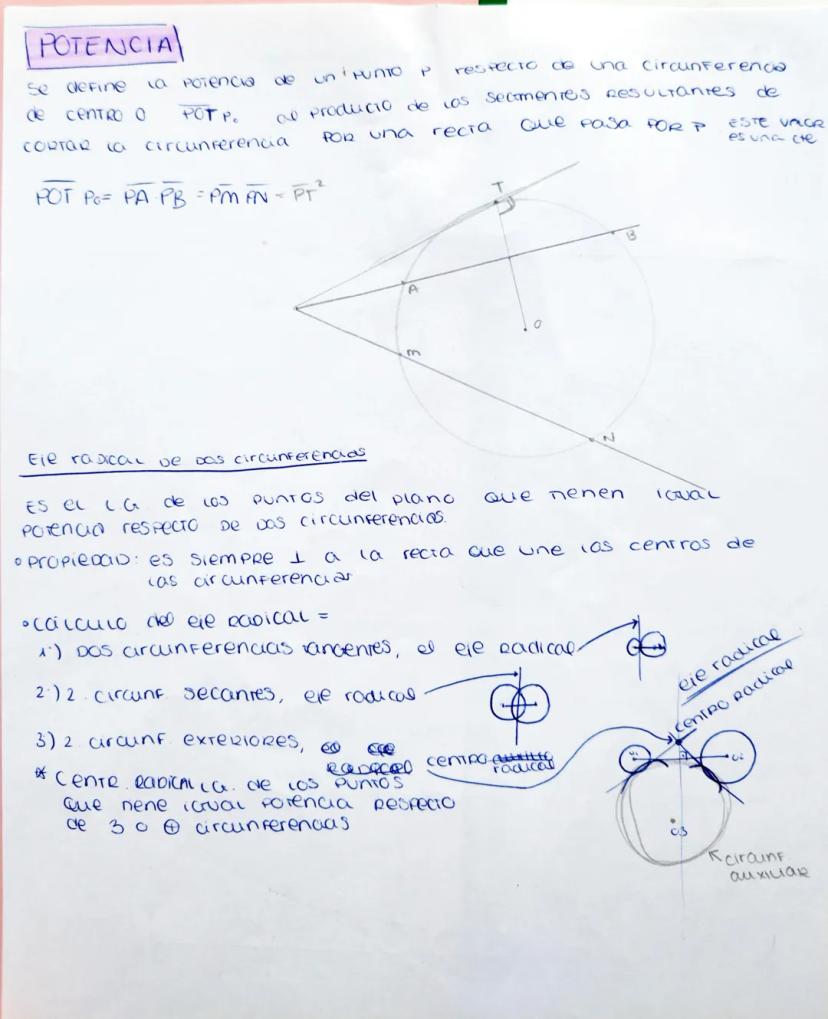 POTENCIA
Se define la potencia de un punto P respecto de una circunferencia
de centro O POT P. al producto de los segmentos resultantes de
cortar la circunferencia por una recta que pasa por P este valor
es una cte
POT Po = PA · PB = PM PN = PT²
T
B
A
O
M
N
Eje radical de dos circunferencias
Es el L.G. de los puntos del plano que tienen igual
potencia respecto de dos circunferencias.
• Propiedad: es siempre ⊥ a la recta que une los centros de
las circunferencias
• Cálculo del eje radical =
1·) Dos circunferencias tangentes, el eje radical
2·) 2 circunf secantes, eje radical
3) 2 circunf exteriores, centro
radical
eje radical
centro radical
* Centr. radical L.G. de los puntos
que tiene igual potencia respecto
de 3 o ⊕ circunferencias
O1
O2
O3
circunf
auxiliar